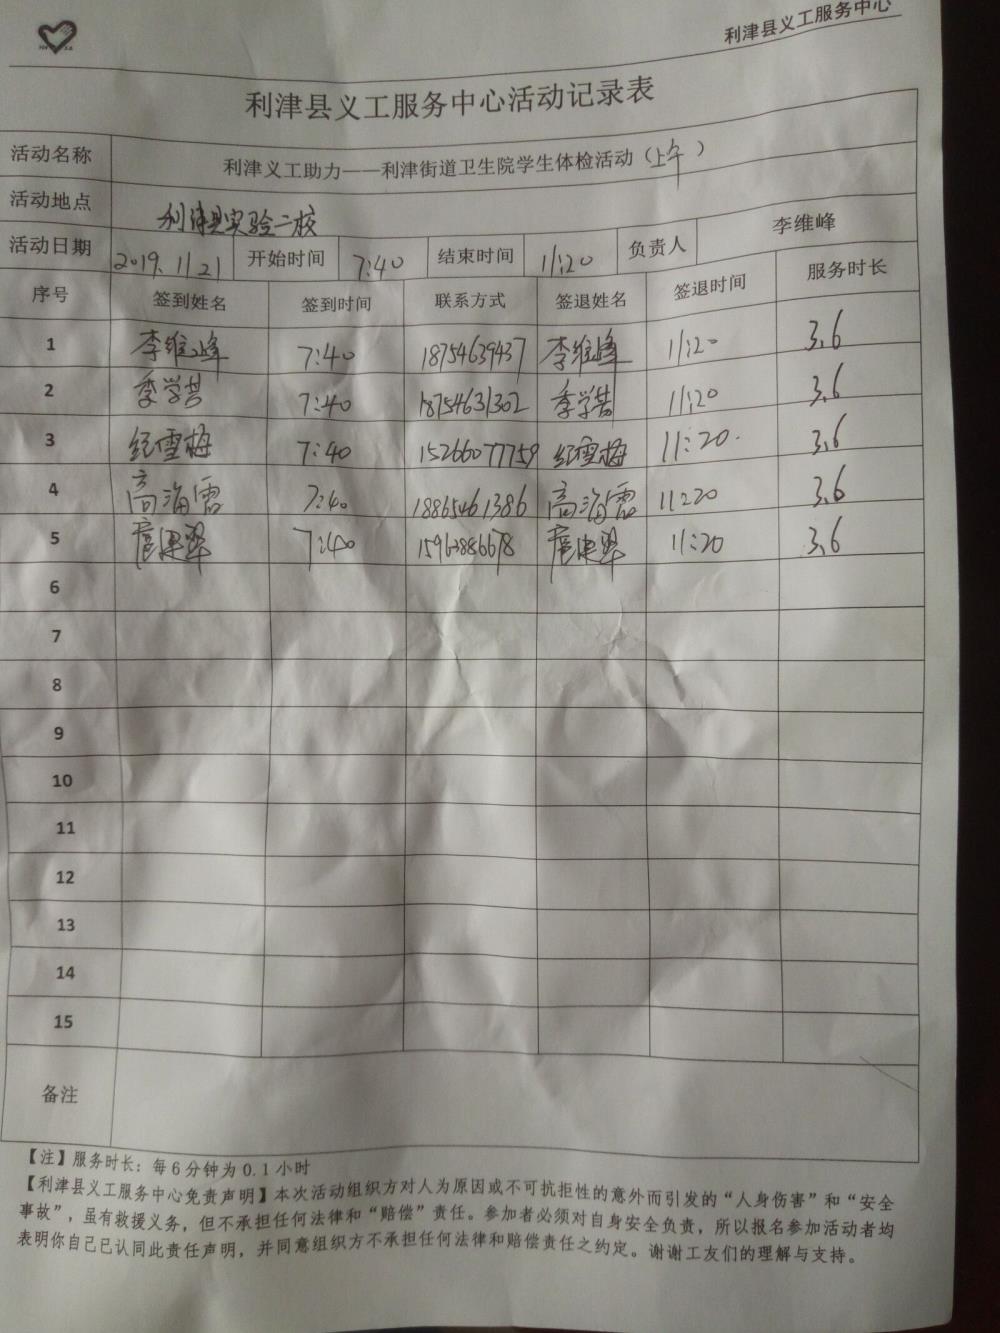 利津县义工服务中心
利津县义工服务中心活动记录表
活动名称 利津义工助力——利津街道卫生院学生体检活动（上午）
活动地点 利津县实验二校
活动日期 2019.11.21 开始时间 7:40 结束时间 11:20 负责人 李维峰
序号 签到姓名 签到时间 联系方式 签退姓名 签退时间 服务时长
1 李维峰 7:40 18754639437 李维峰 11:20 3.6
2 季学芸 7:40 18754631302 季学芸 11:20 3.6
3 纪雪梅 7:40 15266077759 纪雪梅 11:20. 3.6
4 高海霞 7:40 18865461386 高海霞 11:20 3.6
5 7:40 15963886678 11:20 3.6
6
7
8
9
10
11
12
13
14
15
备注
【注】服务时长：每6分钟为0.1小时
【利津县义工服务中心免责声明】本次活动组织方对人为原因或不可抗拒性的意外而引发的“人身伤害”和“安全
事故”，虽有救援义务，但不承担任何法律和“赔偿”责任。参加者必须对自身安全负责，所以报名参加活动者均
表明你自己已认同此责任声明，并同意组织方不承担任何法律和赔偿责任之约定。谢谢工友们的理解与支持。